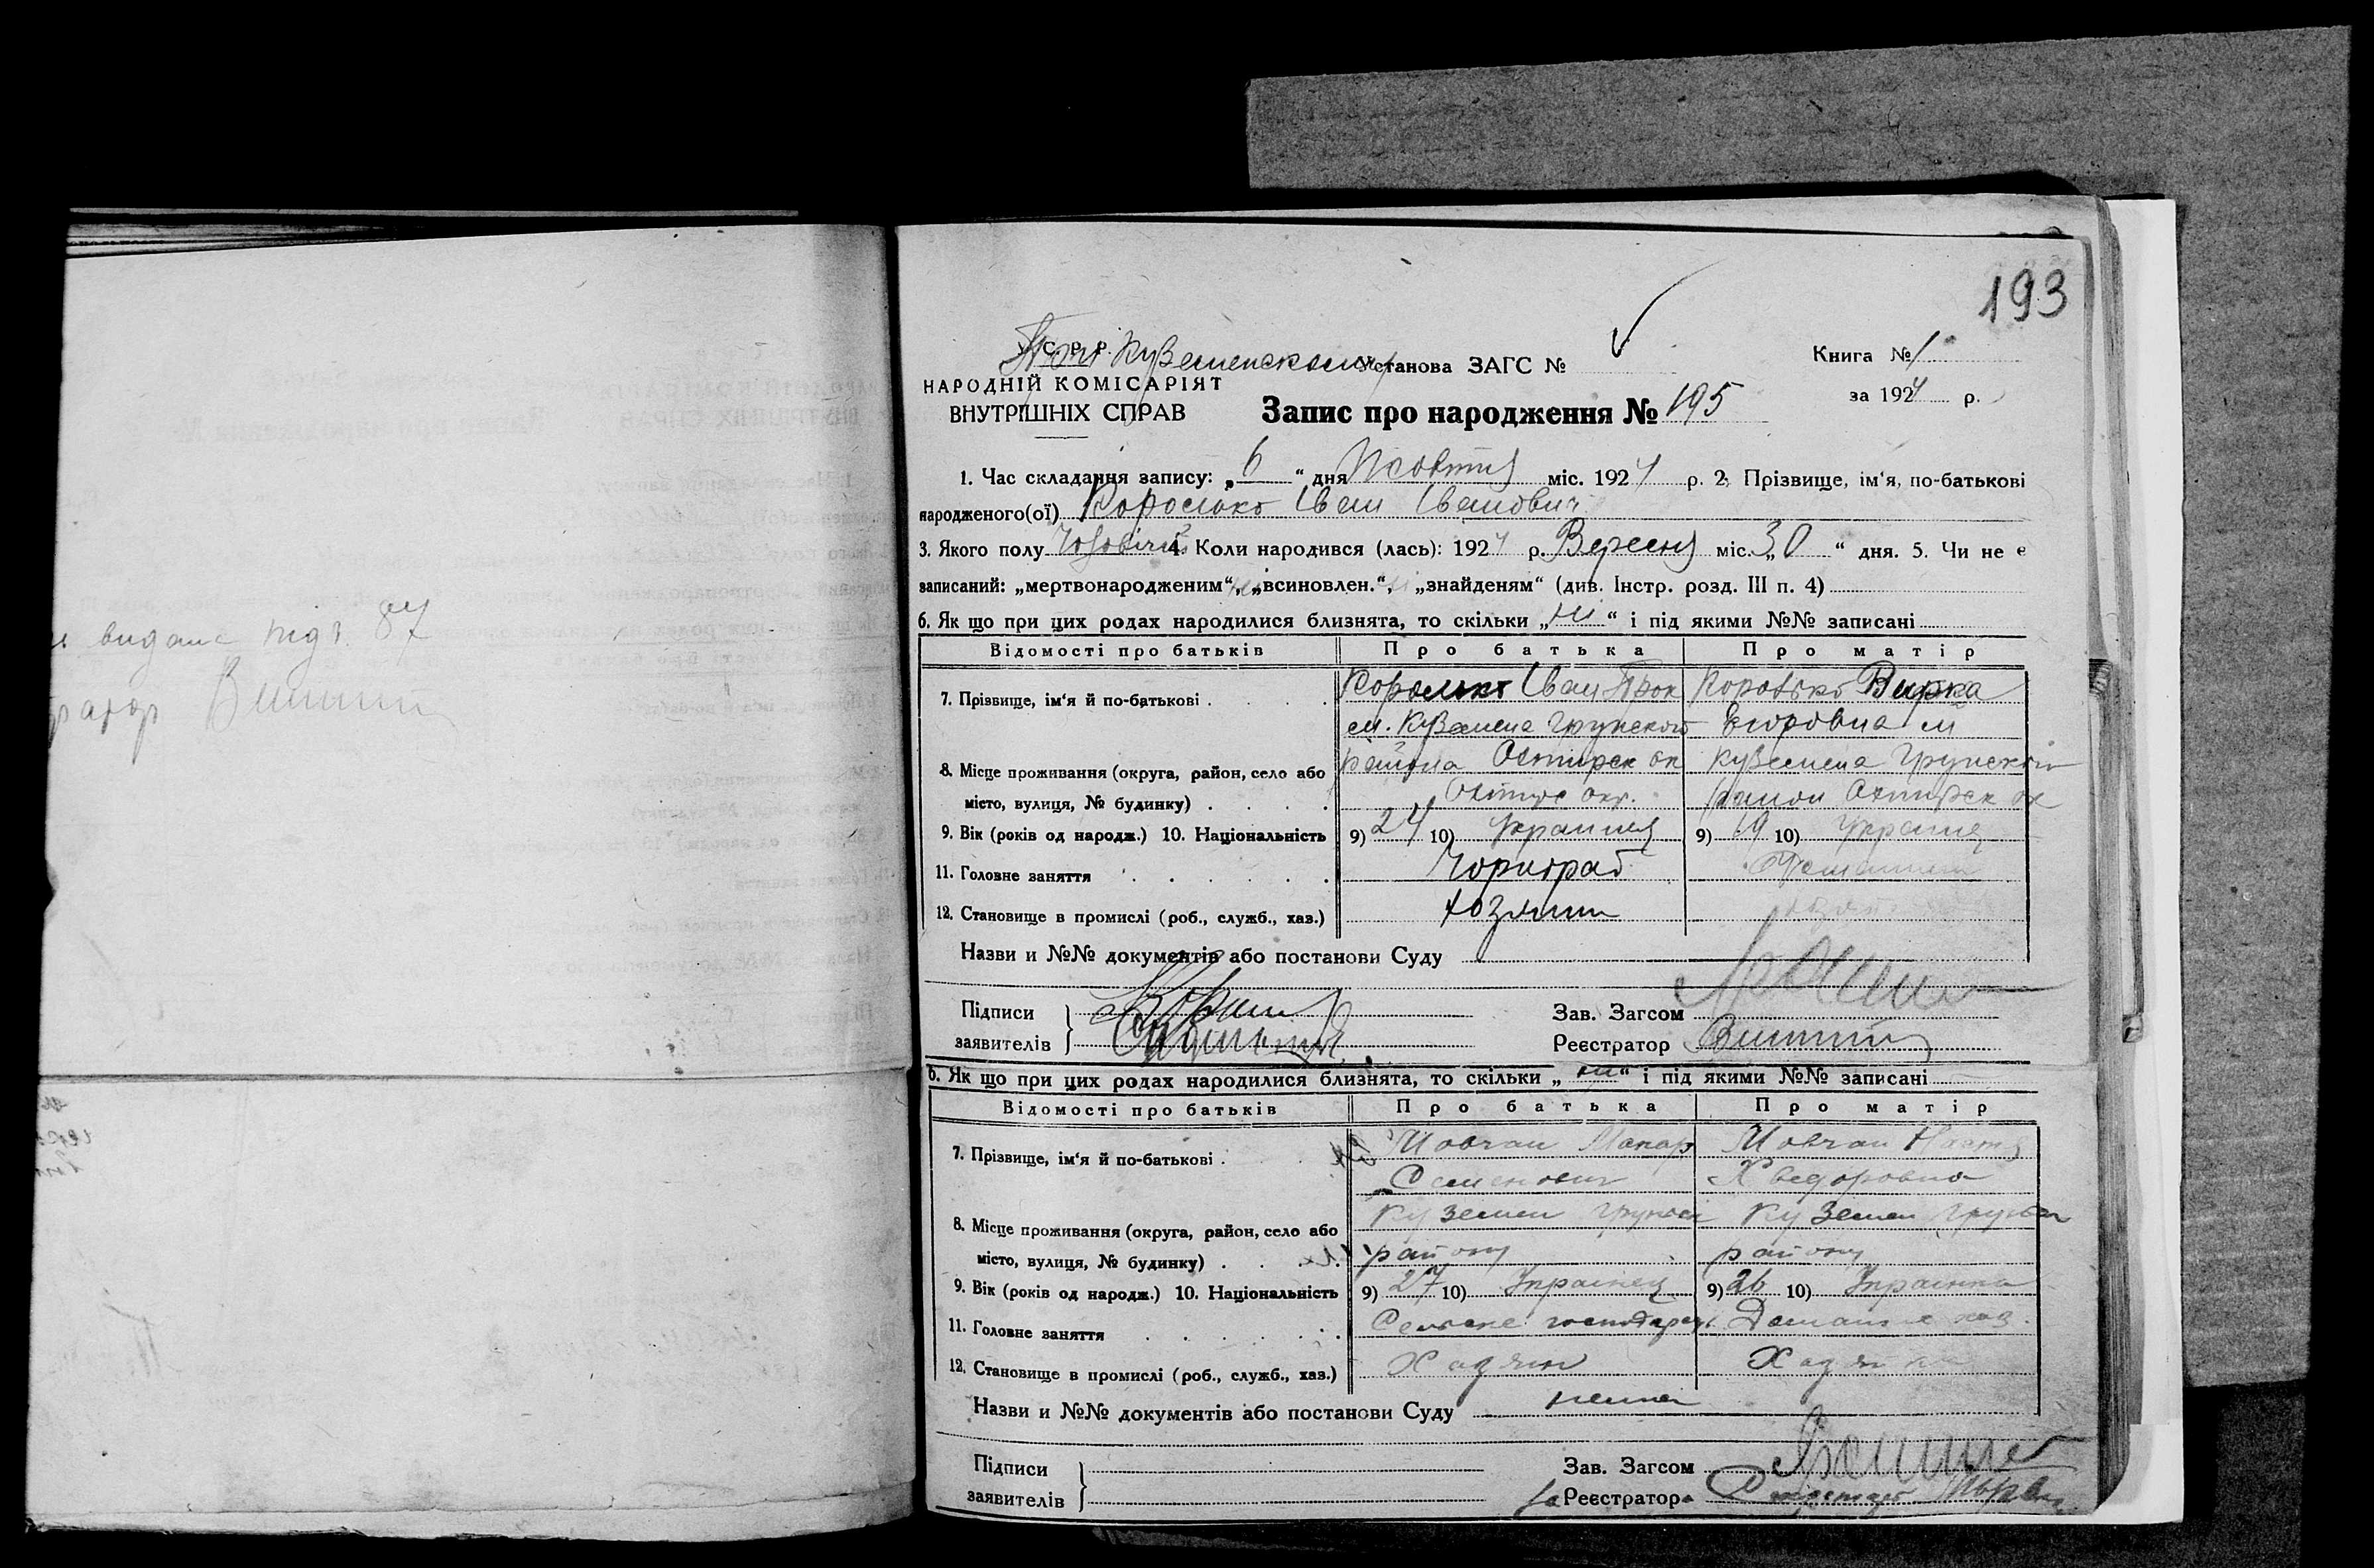 193
видане під № 87
У. С. Р. Р.
При Куземенському Установа ЗАГС №
Книга № 1
НАРОДНІЙ КОМІСАРІЯТ
ВНУТРІШНІХ СПРАВ
за 1924 р.
Запис про народження № 195
1. Час складання запису: „ 6 “ дня Жовтня міс. 1924 р. 2. Прізвище, ім‘я, по-батькові
народженого(ої) Коро Іван Іванович
3. Якого полу Чоловічої 4. Коли народився (лась): 1924 р. Вересня міс. „30“ дня. 5. Чи не є
записаний: „мертвонародженим“, ні „всиновлен.“, ні „знайденям“ (див. Інстр. розд. III п. 4)
6. Як що при цих родах народилися близнята, то скільки „ ні “ і під якими №№ записані
Відомості про батьків Про батька Про матір
7. Прізвище, ім‘я й по-батькові Іван Прок
м. Куземена Грунского Егоровна м
8. Місце проживання (округа, район, село або района Охтирск ок Куземена Грунского
місто, вулиця, № будинку) окр. район Охтирск ок
9. Вік (років од народж.) 10. Національність 9) 24 10) Украинец 9) 19 10)
11. Головне заняття Чорнораб
12. Становище в промислі (роб., служб., хаз.) хозяин
Назви и №№ документів або постанови Суду
Підписи
заявителів
Зав. Загсом
Реєстратор
6. Як що при цих родах народилися близнята, то скільки „ ни “ і під якими №№ записані
Відомості про батьків Про батька Про матір
7. Прізвище, ім‘я й по-батькові Мовчан Макар Мовчан Настя
Семенович Хведоровна
8. Місце проживання (округа, район, село або Куземен Грунськ Куземен Грунськ
місто, вулиця, № будинку) району району
9. Вік (років од народж.) 10. Національність 9) 27 10) Українец 9) 26 10) Українка
11. Головне заняття Сельске господар. Домашнє хоз.
12. Становище в промислі (роб., служб., хаз.) Хазяин Хазяйка
Назви и №№ документів або постанови Суду нема
Підписи
заявителів
Зав. Загсом
За Реєстратора Секретарь